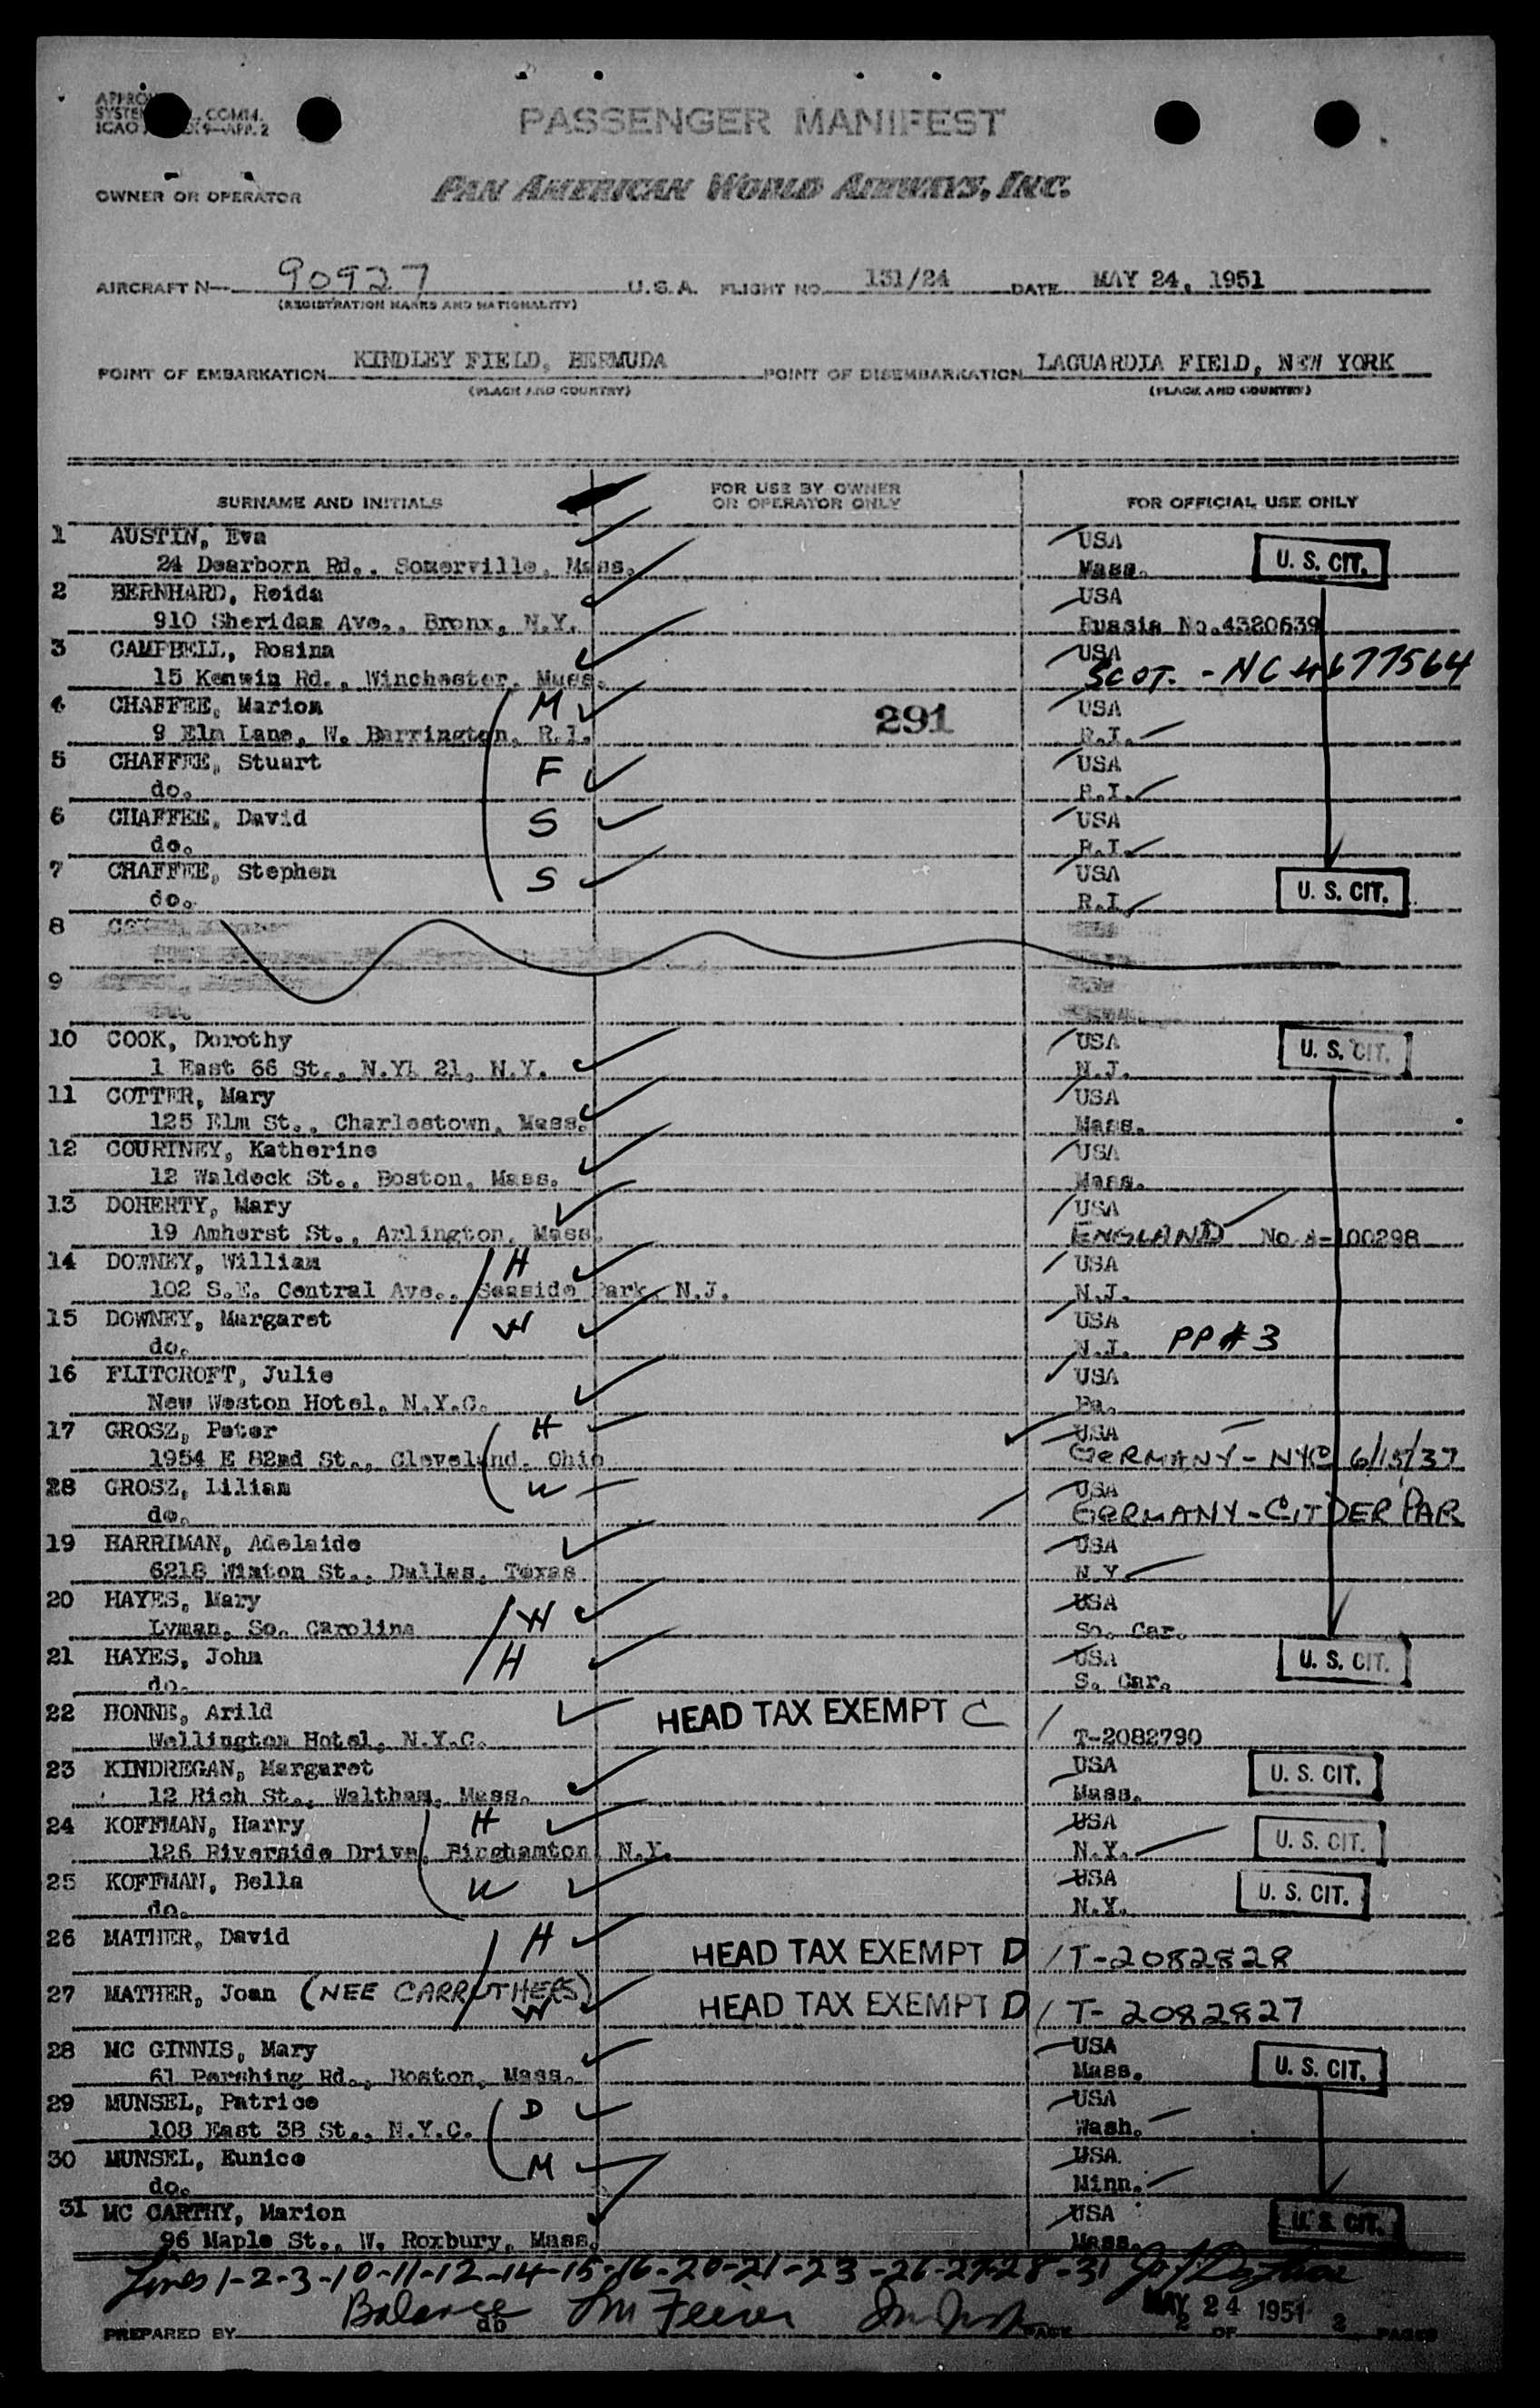 PASSENGER MANIFEST
OWNER OR OPERATOR PAN AMERICAN WORLD AIRWAYS, INC.
AIRCRAFT N- 90927 U.S.A. FLIGHT NO. 131/24 DATE MAY 24, 1951
(REGISTRATION MARKS AND NATIONALITY)
POINT OF EMBARKATION KINDLEY FIELD, BERMUDA POINT OF DISEMBARKATION LAGUARDIA FIELD, NEW YORK
(PLACE AND COUNTRY) (PLACE AND COUNTRY)
SURNAME AND INITIALS FOR USE BY OWNER OR OPERATOR ONLY FOR OFFICIAL USE ONLY
1 AUSTIN, Eva USA
24 Dearborn Rd., Somerville, Mass. Mass. U. S. CIT.
2 BERNHARD, Reida USA
910 Sheridan Ave., Bronx, N.Y. Russia No.4320639
3 CAMPBELL, Rosina USA
15 Kenwin Rd., Winchester, Mass. SCOT. - NC 4677564
4 CHAFFEE, Marion M 291 USA
9 Elm Lane, W. Barrington, R.I. R.I.
5 CHAFFEE, Stuart F USA
do. R.I.
6 CHAFFEE, David S USA
do. R.I.
7 CHAFFEE, Stephen S USA
do. R.I. U. S. CIT.
8
9
10 COOK, Dorothy USA U. S. CIT.
1 East 66 St., N.Y. 21, N.Y. N.J.
11 COTTER, Mary USA
125 Elm St., Charlestown, Mass. Mass.
12 COURTNEY, Katherine USA
12 Waldeck St., Boston, Mass. Mass.
13 DOHERTY, Mary USA
19 Amherst St., Arlington, Mass. ENGLAND No A-100298
14 DOWNEY, William H USA
102 S.E. Central Ave., Seaside Park, N.J. N.J.
15 DOWNEY, Margaret W USA
do. N.J. PP#3
16 FLITCROFT, Julie USA
New Weston Hotel, N.Y.C. Pa.
17 GROSZ, Peter H USA
1954 E 82nd St., Cleveland, Ohio GERMANY - NYC 6/15/37
28 GROSZ, Lilian W USA
do. GERMANY - CIT DER PAR
19 HARRIMAN, Adelaide USA
6218 Winton St., Dallas, Texas N.Y.
20 HAYES, Mary W USA
Lyman, So. Carolina So. Car.
21 HAYES, John H USA U. S. CIT.
do. S. Car.
22 HONNE, Arild HEAD TAX EXEMPT C
Wellington Hotel, N.Y.C. T-2082790
23 KINDREGAN, Margaret USA U. S. CIT.
12 Rich St., Waltham, Mass. Mass.
24 KOFFMAN, Harry H USA
126 Riverside Drive, Binghamton, N.Y. N.Y. U. S. CIT.
25 KOFFMAN, Bella W USA U. S. CIT.
do. N.Y.
26 MATHER, David H HEAD TAX EXEMPT D T-2082828
27 MATHER, Joan (NEE CARRUTHERS) W HEAD TAX EXEMPT D T-2082827
28 MC GINNIS, Mary USA
61 Pershing Rd., Boston, Mass. Mass. U. S. CIT.
29 MUNSEL, Patrice D USA
108 East 38 St., N.Y.C. Wash.
30 MUNSEL, Eunice M USA
do. Minn.
31 MC CARTHY, Marion USA U. S. CIT.
96 Maple St., W. Roxbury, Mass. Mass.
Lines 1-2-3-10-11-12-14-15-16-20-21-23-26-27-28-31
Balance
MAY 24 1951
PREPARED BY db PAGE 2 OF 2 PAGES